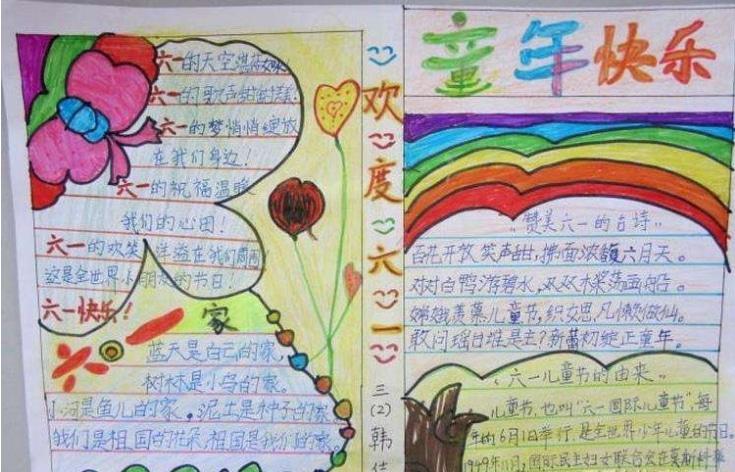 六一的天空湛蓝
六一的歌声甜甜
六一的梦悄悄绽放
在我们身边！
六一的祝福温暖
我们的心田！
六一的欢笑洋溢在我们
这是全世界小朋友的节日！
六一快乐！
家
蓝天是白云的家，
树林是小鸟的家。
小河是鱼儿的家。泥土是种子的家。
我们是祖国的花朵，祖国是我们的家。
欢度六一
三(2)韩佳
童年快乐
赞美六一的古诗
百花开放笑声甜，拂面浓馥六月天。
对对白鸭游碧水，双双木桨荡画船。
嫦娥羡慕儿童节，织女思凡懒做仙。
敢问瑶台谁是主？新蕾初绽正童年。
六一儿童节的由来
儿童节，也叫“六一国际儿童节”，每
年的6月1日举行，是全世界少年儿童的节日。
1949年11月，国际民主妇女联合会在莫斯科